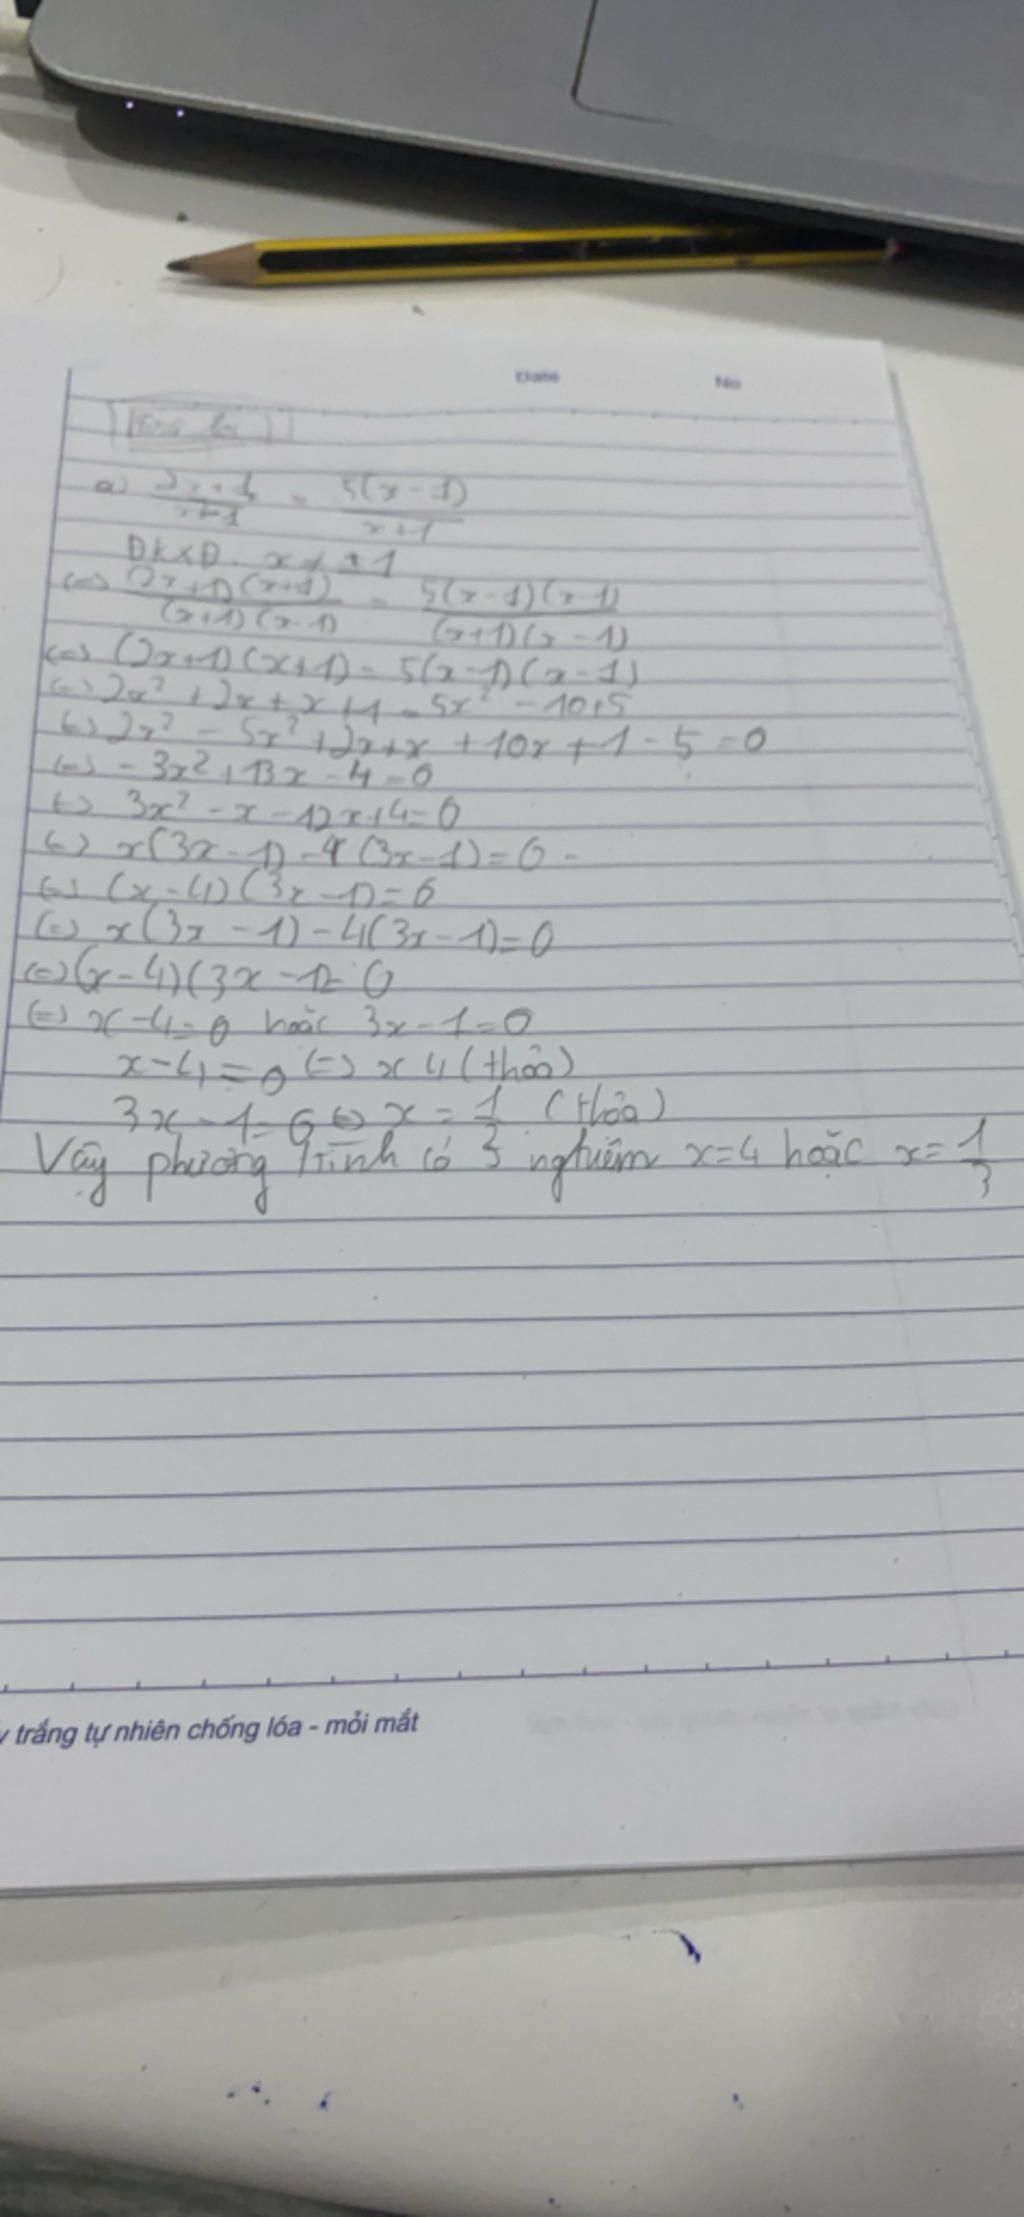 Date No
a) 2x+1/x-1 = 5(x-1)/x+1
ĐKXĐ. x ≠ ±1
(=) (2x+1)(x+1)/(x+1)(x-1) = 5(x-1)(x-1)/(x+1)(x-1)
(=) (2x+1)(x+1) = 5(x-1)(x-1)
(=) 2x² + 2x + x + 1 = 5x² - 10+5
(=) 2x² - 5x² + 2x + x + 10x + 1 - 5 = 0
(=) - 3x² + 13x - 4 = 0
(=) 3x² - x - 12x + 4 = 0
(=) x(3x - 1) - 4(3x - 1) = 0
(=) (x - 4)(3x - 1) = 0
(=) x(3x - 1) - 4(3x - 1) = 0
(=) (x - 4)(3x - 1) = 0
(=) x - 4 = 0 hoặc 3x - 1 = 0
x - 4 = 0 (=) x 4 (thỏa)
3x - 1 = 0 (=) x = 1 (thỏa)
Vậy phương trình có 3 nghiệm x = 4 hoặc x = 1/3
trắng tự nhiên chống lóa - mỏi mắt